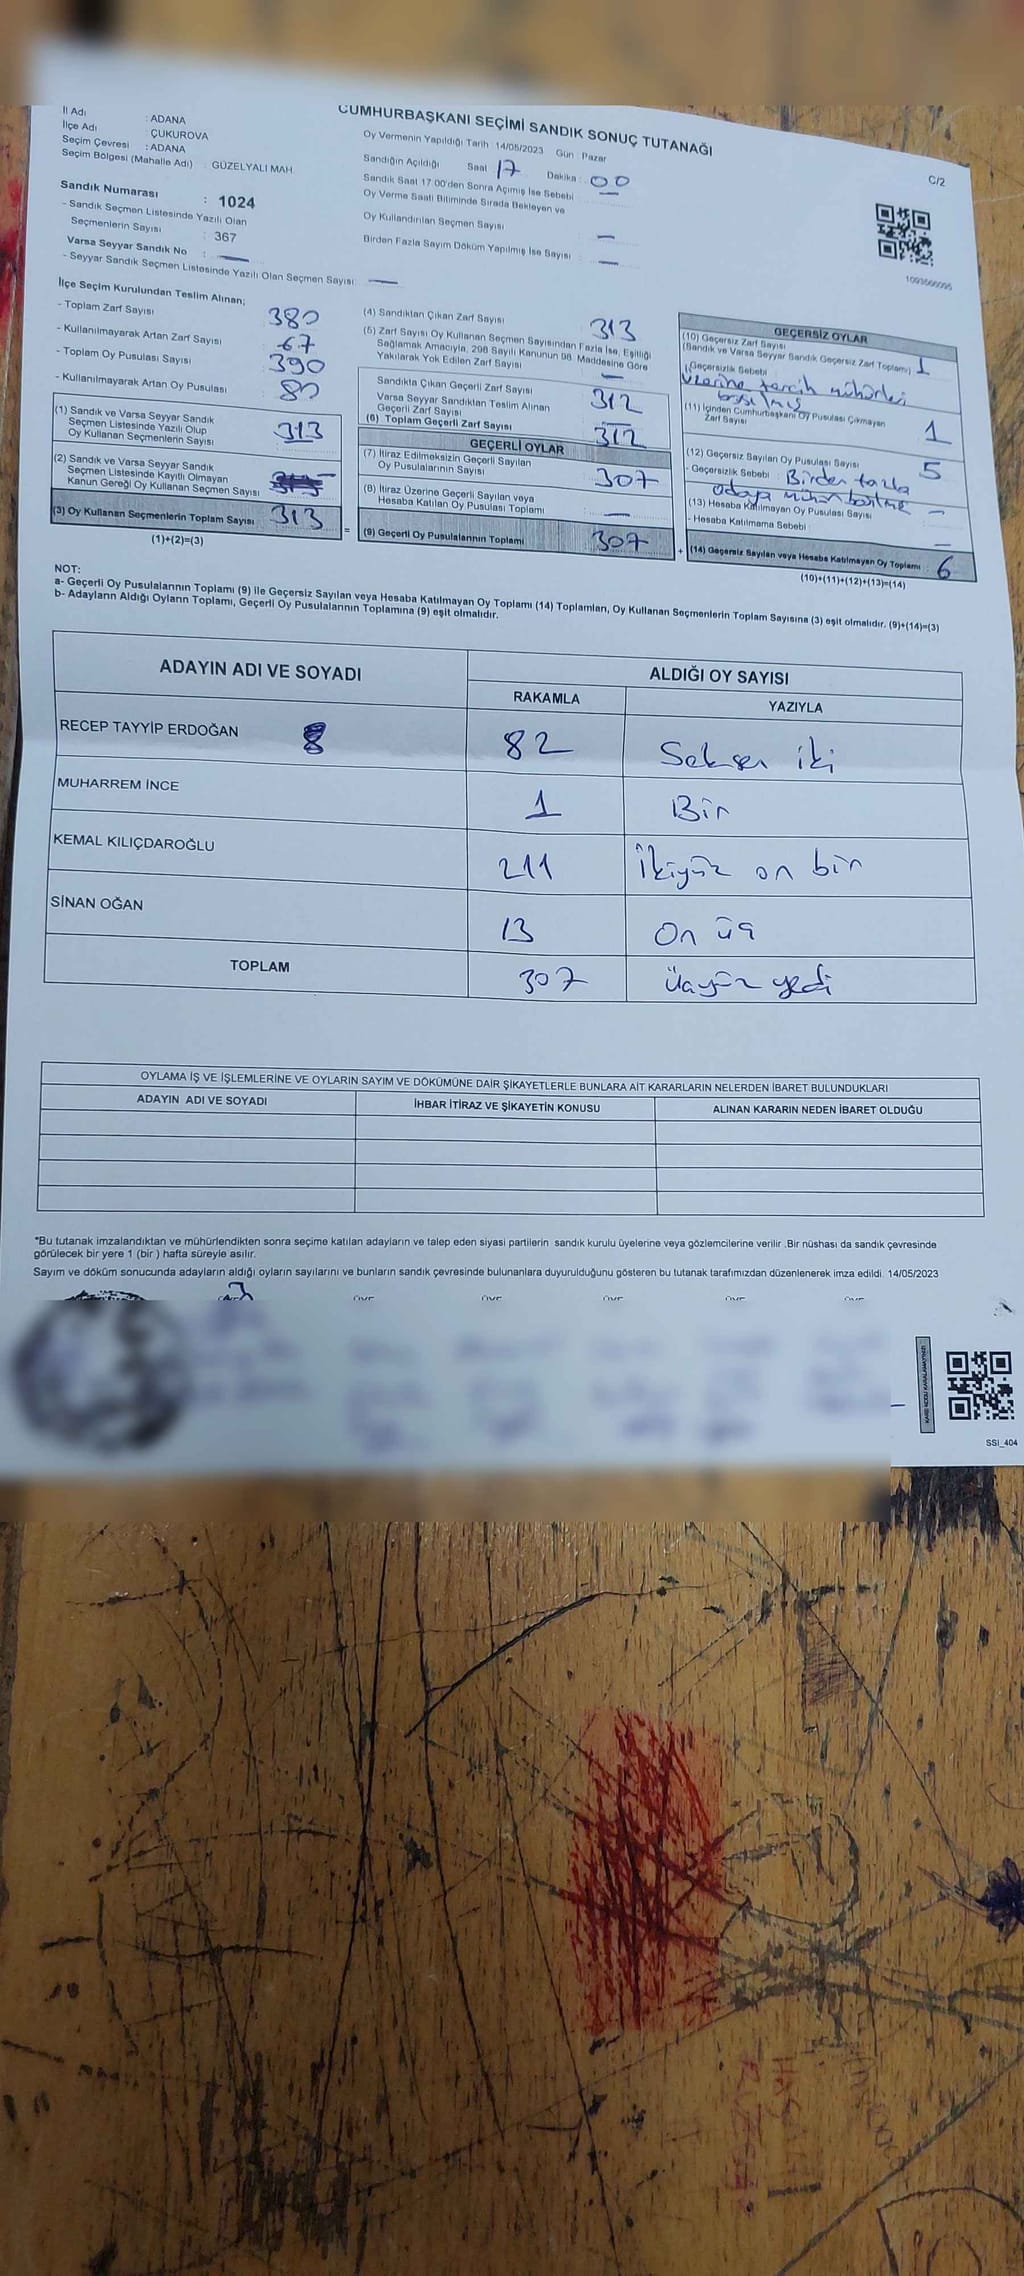 CUMHURBAŞKANI SEÇİMİ SANDIK SONUÇ TUTANAĞI
İl Adı : ADANA
İlçe Adı : ÇUKUROVA
Seçim Çevresi : ADANA
Seçim Bölgesi (Mahalle Adı) : GÜZELYALI MAH.
Sandık Numarası : 1024
- Sandık Seçmen Listesinde Yazılı Olan
Seçmenlerin Sayısı : 367
Varsa Seyyar Sandık No : —
- Seyyar Sandık Seçmen Listesinde Yazılı Olan Seçmen Sayısı : —
Oy Vermenin Yapıldığı Tarih 14/05/2023 Gün : Pazar
Sandığın Açıldığı Saat 17 Dakika : 00
Sandık Saat 17.00'den Sonra Açılmış İse Sebebi —
Oy Verme Saati Bitiminde Sırada Bekleyen ve
Oy Kullandırılan Seçmen Sayısı : —
Birden Fazla Sayım Döküm Yapılmış İse Sayısı : —
C/2
İlçe Seçim Kurulundan Teslim Alınan;
- Toplam Zarf Sayısı 380
- Kullanılmayarak Artan Zarf Sayısı 67
- Toplam Oy Pusulası Sayısı 390
- Kullanılmayarak Artan Oy Pusulası 80
(1) Sandık ve Varsa Seyyar Sandık
Seçmen Listesinde Yazılı Olup
Oy Kullanan Seçmenlerin Sayısı 313
(2) Sandık ve Varsa Seyyar Sandık
Seçmen Listesinde Kayıtlı Olmayan
Kanun Gereği Oy Kullanan Seçmen Sayısı
(3) Oy Kullanan Seçmenlerin Toplam Sayısı 313
(1)+(2)=(3)
=
(4) Sandıktan Çıkan Zarf Sayısı 313
(5) Zarf Sayısı Oy Kullanan Seçmen Sayısından Fazla İse, Eşitliği
Sağlamak Amacıyla, 298 Sayılı Kanunun 98. Maddesine Göre
Yakılarak Yok Edilen Zarf Sayısı —
Sandıkta Çıkan Geçerli Zarf Sayısı 312
Varsa Seyyar Sandıktan Teslim Alınan
Geçerli Zarf Sayısı —
(6) Toplam Geçerli Zarf Sayısı 312
GEÇERLİ OYLAR
(7) İtiraz Edilmeksizin Geçerli Sayılan
Oy Pusulalarının Sayısı 307
(8) İtiraz Üzerine Geçerli Sayılan veya
Hesaba Katılan Oy Pusulası Toplamı —
(9) Geçerli Oy Pusulalarının Toplamı 307
+
GEÇERSİZ OYLAR
(10) Geçersiz Zarf Sayısı
(Sandık ve Varsa Seyyar Sandık Geçersiz Zarf Toplamı) 1
(Geçersizlik Sebebi :
Üzerine tercih mühürleri
basılmış
(11) İçinden Cumhurbaşkanı Oy Pusulası Çıkmayan
Zarf Sayısı 1
(12) Geçersiz Sayılan Oy Pusulası Sayısı 5
- Geçersizlik Sebebi : Birden fazla
adaya mühür basılma
(13) Hesaba Katılmayan Oy Pusulası Sayısı —
- Hesaba Katılmama Sebebi : —
(14) Geçersiz Sayılan veya Hesaba Katılmayan Oy Toplamı : 6
(10)+(11)+(12)+(13)=(14)
NOT:
a- Geçerli Oy Pusulalarının Toplamı (9) ile Geçersiz Sayılan veya Hesaba Katılmayan Oy Toplamı (14) Toplamları, Oy Kullanan Seçmenlerin Toplam Sayısına (3) eşit olmalıdır. (9)+(14)=(3)
b- Adayların Aldığı Oyların Toplamı, Geçerli Oy Pusulalarının Toplamına (9) eşit olmalıdır.
ADAYIN ADI VE SOYADI ALDIĞI OY SAYISI
RAKAMLA YAZIYLA
RECEP TAYYİP ERDOĞAN 8 82 Seksen iki
MUHARREM İNCE 1 Bir
KEMAL KILIÇDAROĞLU 211 İkiyüz on bir
SİNAN OĞAN 13 On üç
TOPLAM 307 üçyüz yedi
OYLAMA İŞ VE İŞLEMLERİNE VE OYLARIN SAYIM VE DÖKÜMÜNE DAİR ŞİKAYETLERLE BUNLARA AİT KARARLARIN NELERDEN İBARET BULUNDUKLARI
ADAYIN ADI VE SOYADI İHBAR İTİRAZ VE ŞİKAYETİN KONUSU ALINAN KARARIN NEDEN İBARET OLDUĞU
*Bu tutanak imzalandıktan ve mühürlendikten sonra seçime katılan adayların ve talep eden siyasi partilerin sandık kurulu üyelerine veya gözlemcilerine verilir .Bir nüshası da sandık çevresinde
görülecek bir yere 1 (bir ) hafta süreyle asılır.
Sayım ve döküm sonucunda adayların aldığı oyların sayılarını ve bunların sandık çevresinde bulunanlara duyurulduğunu gösteren bu tutanak tarafımızdan düzenlenerek imza edildi. 14/05/2023
SSI_404